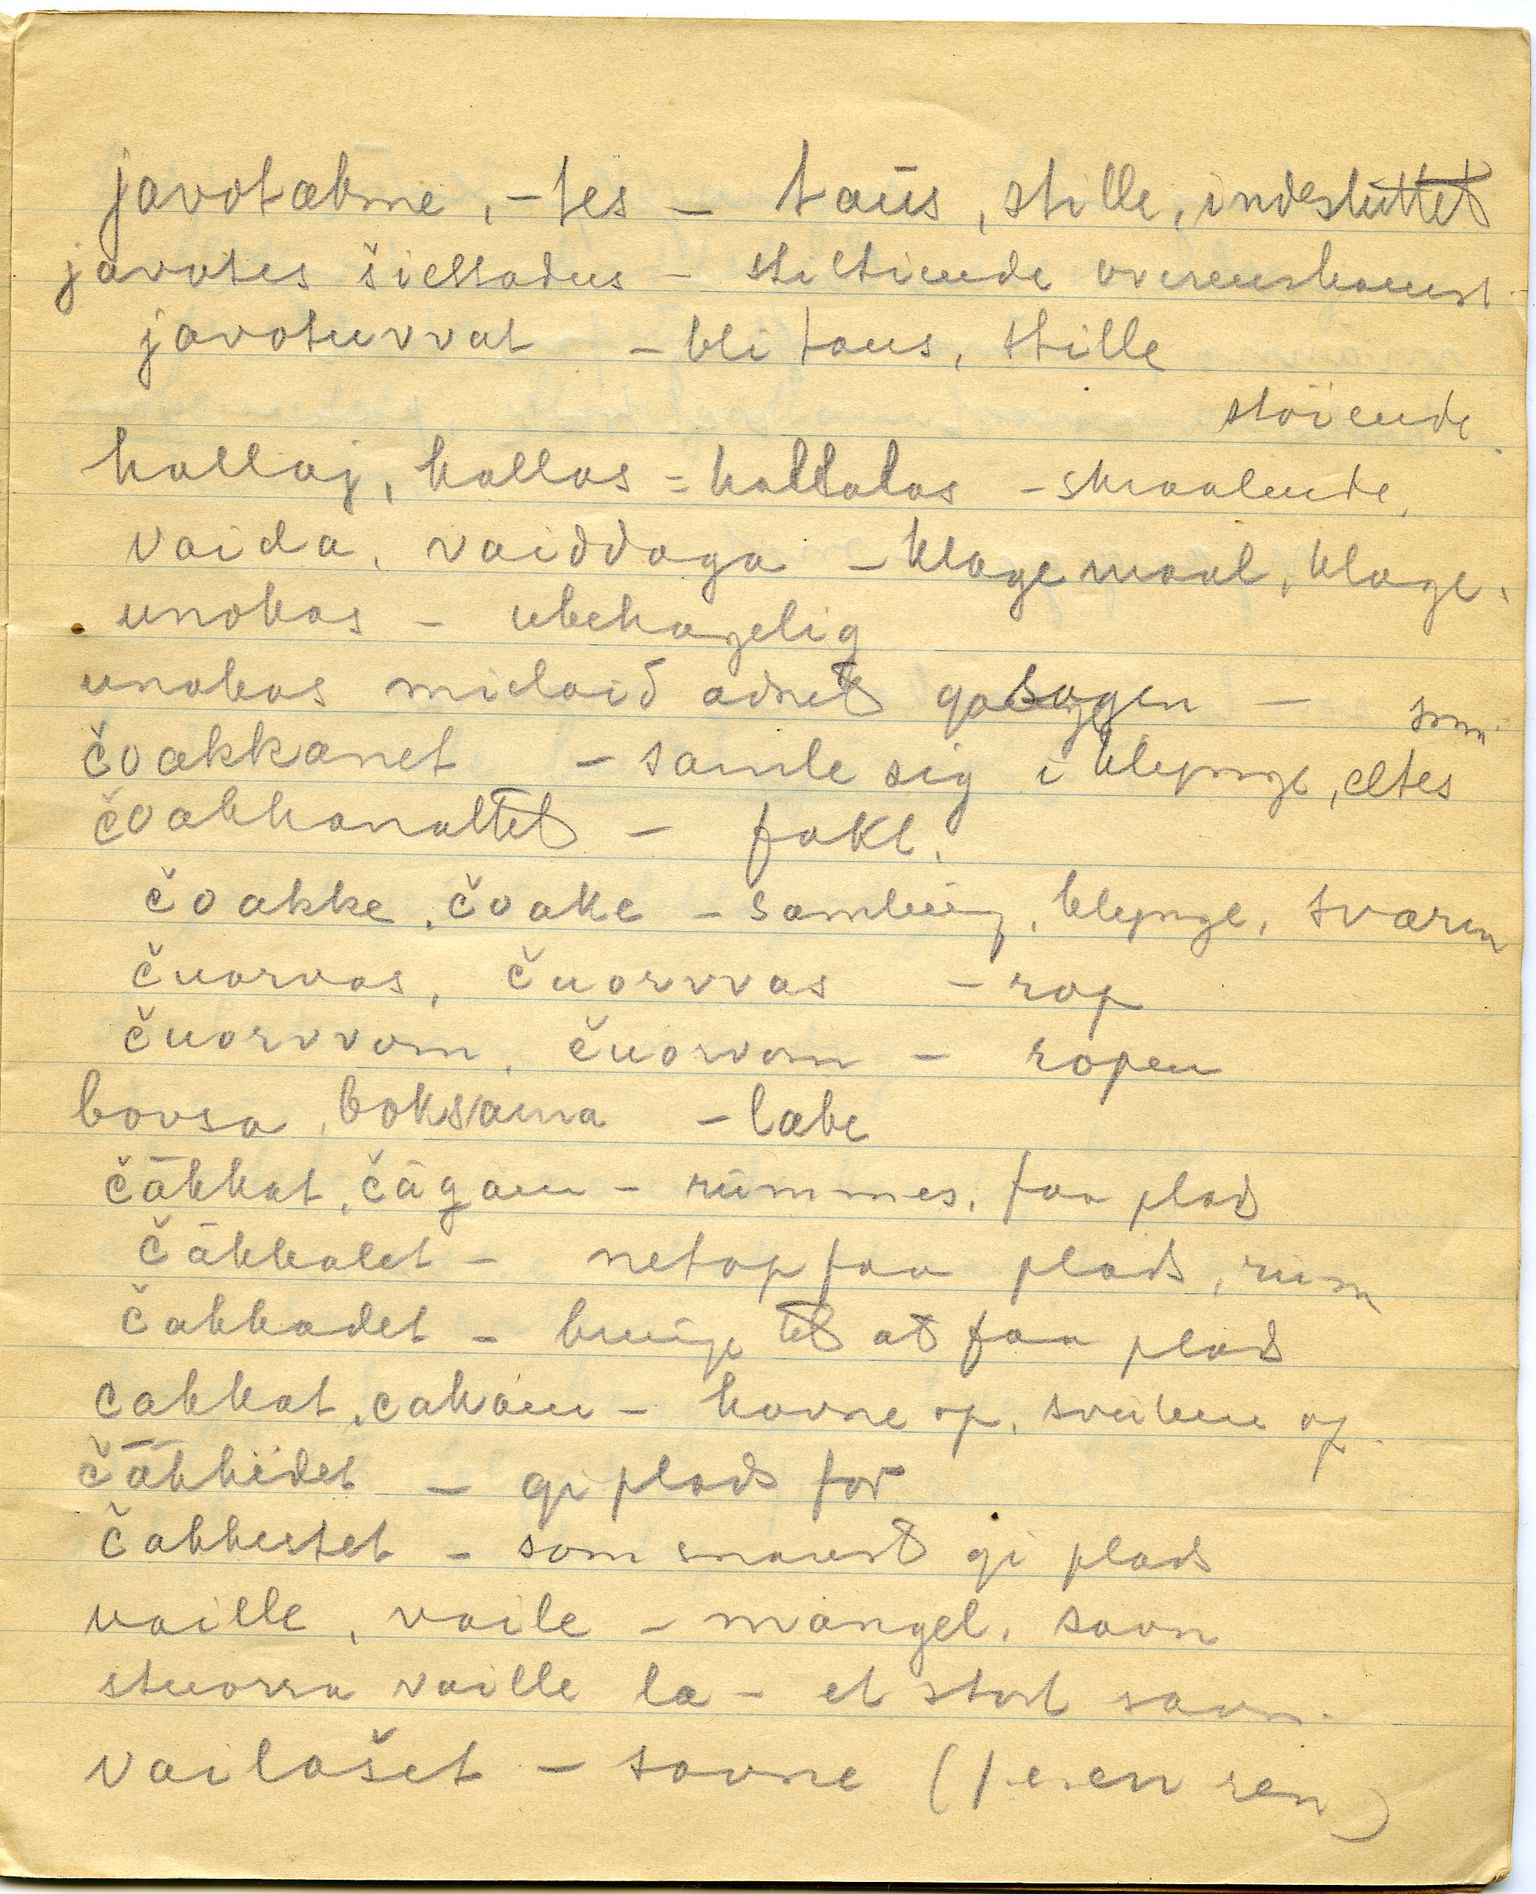 javotæbme, -tes - taus, stille, indesluttet
javotes šiettadus - stiltiende overenskomst.
javotuvvat - bli taus, stille
støiende
hallaj, hallas = hallalas - skraalende,
vaida, vaiddaga - klagemaal, klage.
unokas - ubehagelig
unokas midaid adnet
čoakkanet - samle sig i klynge, eltes
čoakkanattet - fakt.
čoakke, čoake - samling, klynge, sværm
čuorvas, čuorvvas - rop
čuorvvom, čuorvom - ropen
bovsa, boksama - læbe
čākkat, čāgam - rummes, faa plads
čākkalet - netop faa plads, rum
čakkadet - bringe til at faa plads
cakkat, cakam - hovne op, svulme op.
čākkēdet - gi plads for
čakkestet - som snarest gi plads
vaille, vaile - mangel, savn
stuorra vaille la - et stort savn.
vailašet - savne (f.e. en ren)